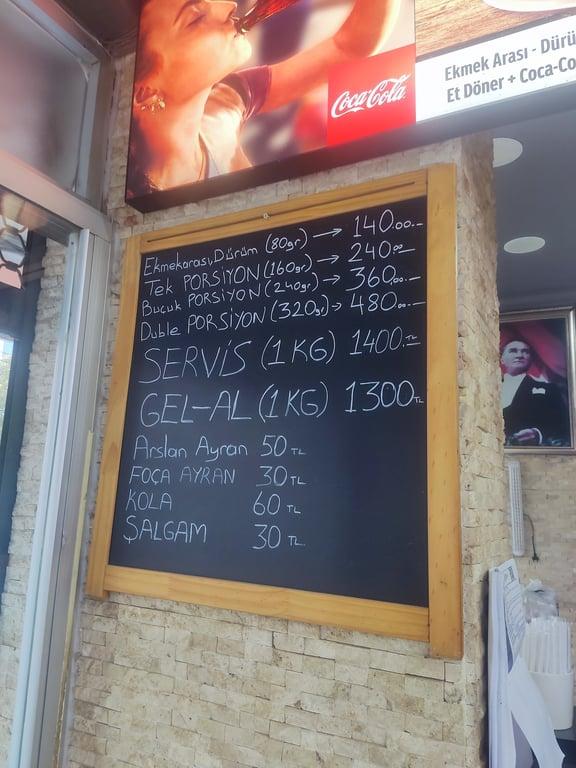 Coca-Cola
Ekmek Arası - Dürü
Et Döner + Coca-Co
Ekmekarası, Dürüm (80gr) → 140.00.-
Tek PORSİYON (160gr) → 240.00
Buçuk PORSİYON (240gr) → 360,00.-
Duble PORSİYON (320gr) → 480.00.-
SERVİS (1 KG) 1400.TL
GEL-AL (1 KG) 1300TL
Arslan Ayran 50 TL
FOÇA AYRAN 30 TL
KOLA 60 TL
ŞALGAM 30 TL